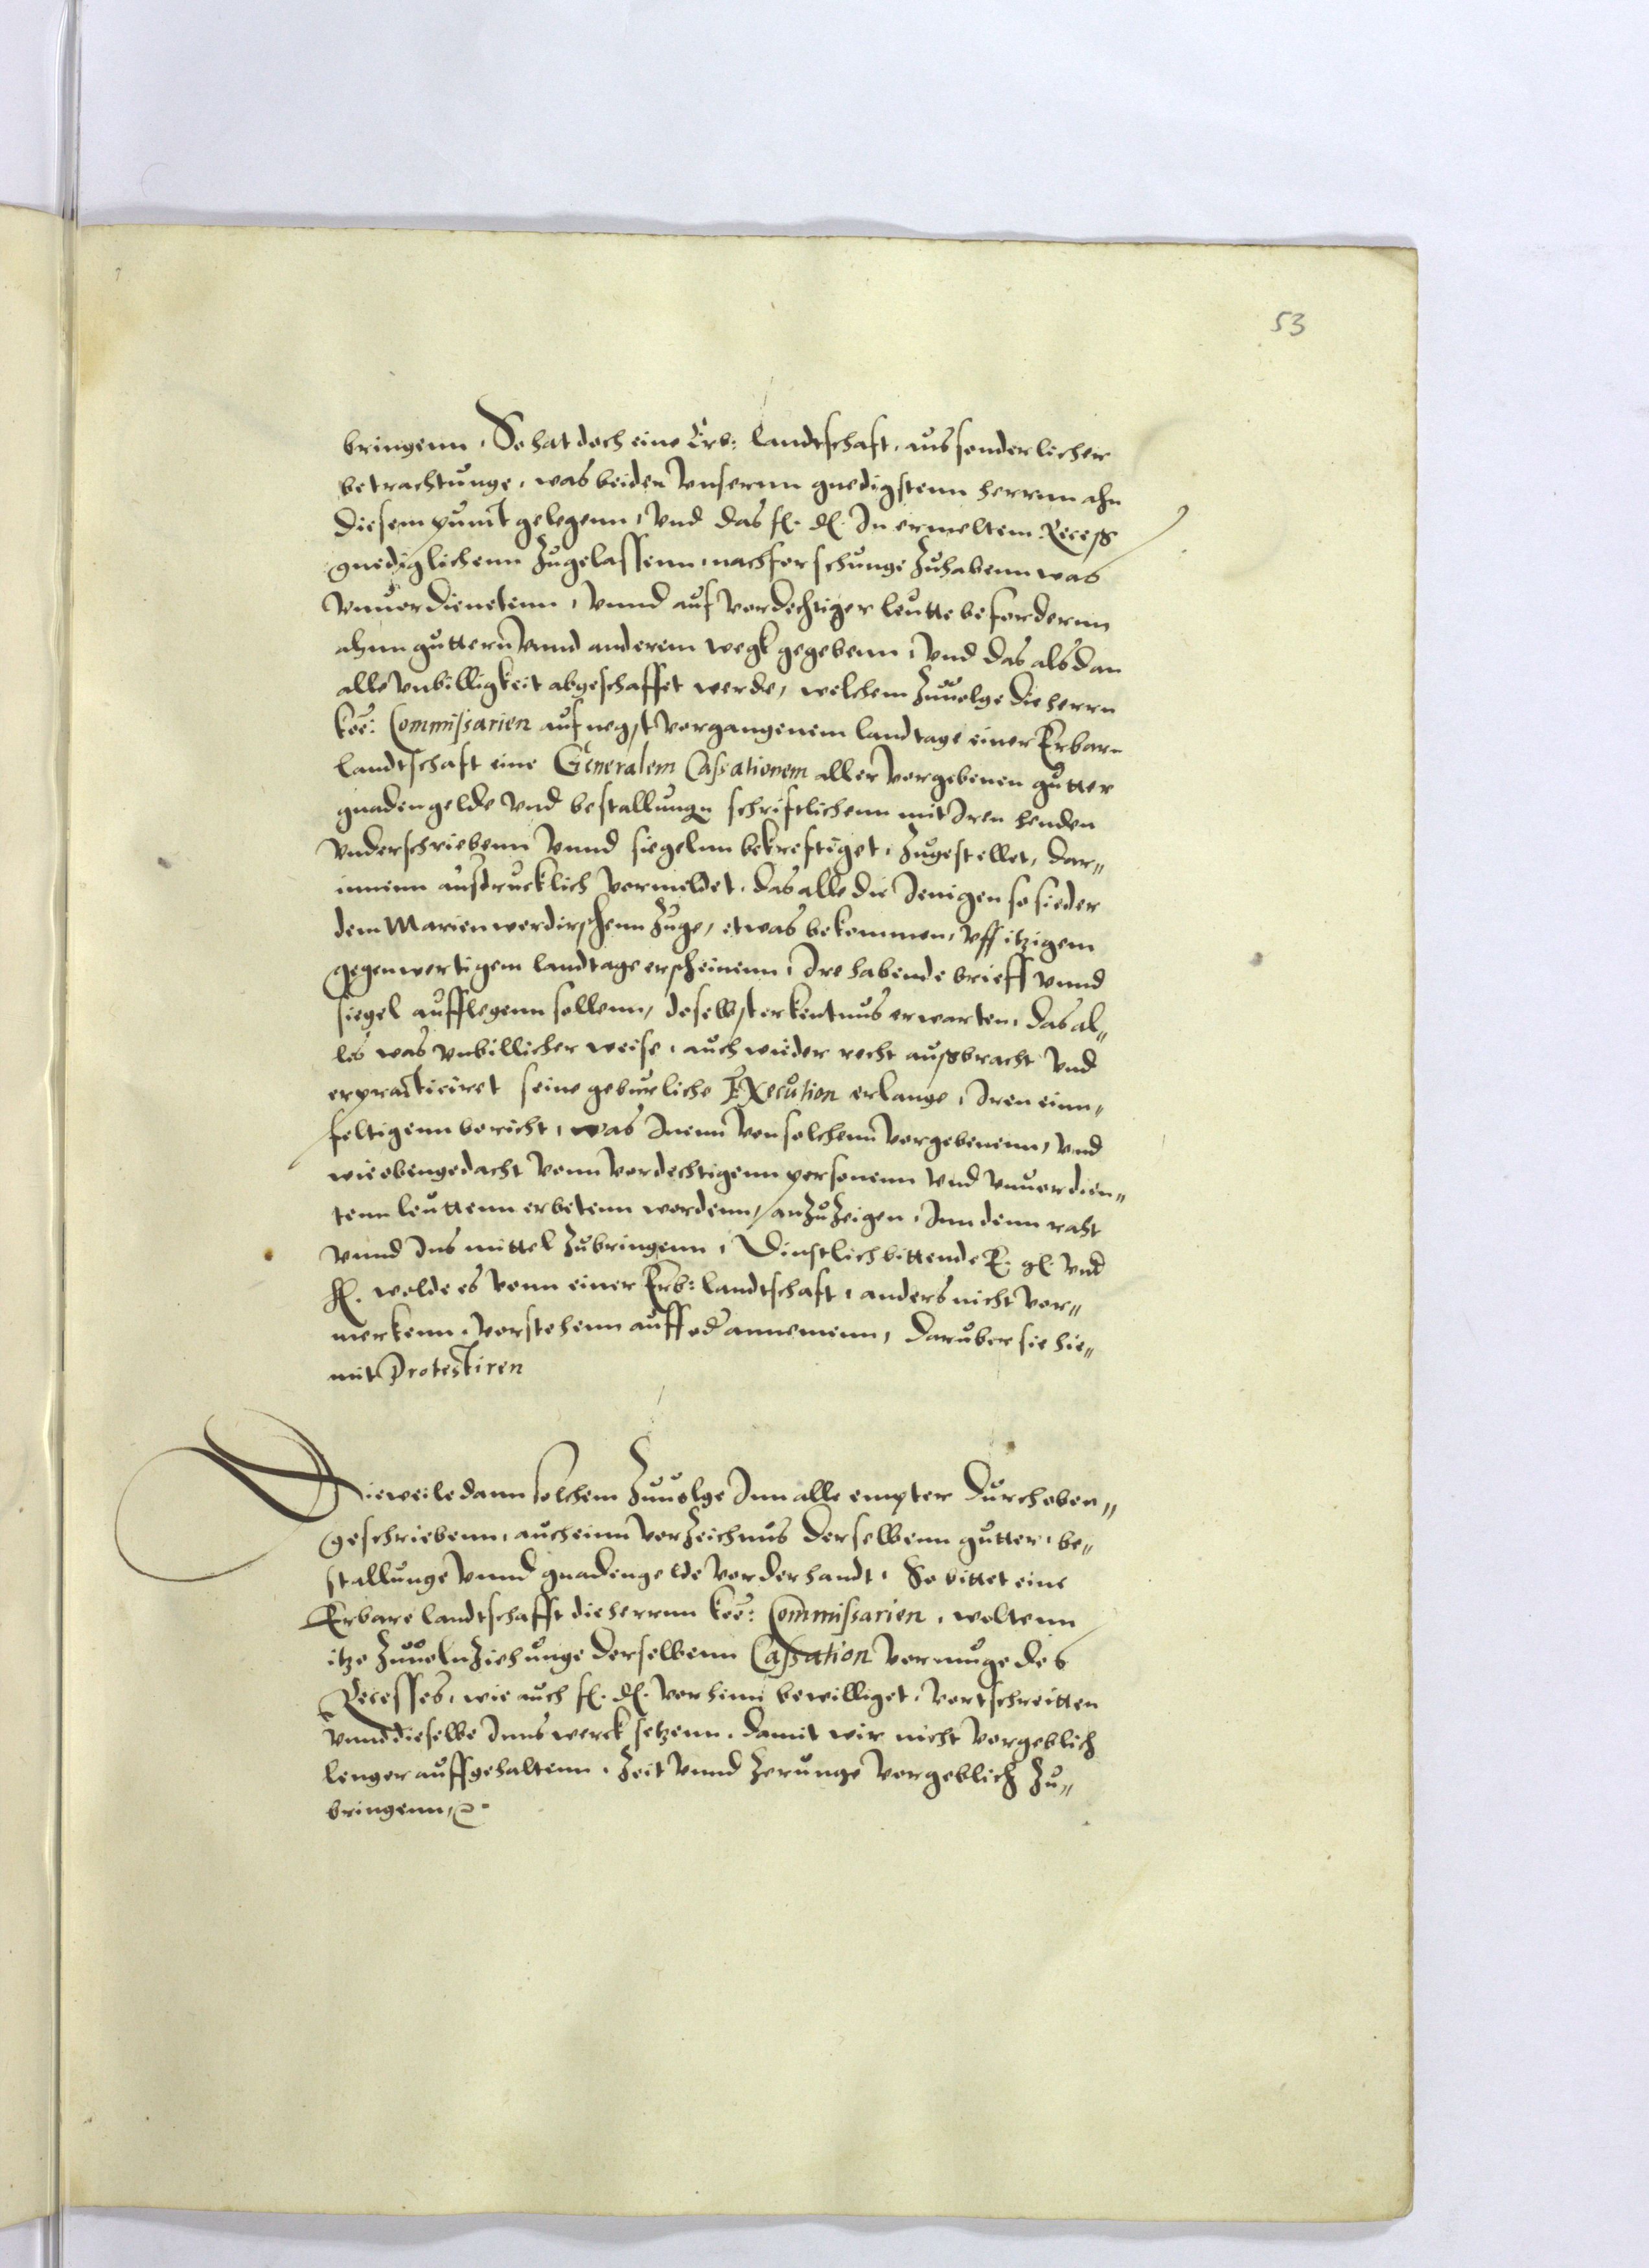 53
bringenn, So hat doch eine Erb: landtschaft, aus sonderlicher
betrachtunge, was beiden vnsernn gnedigstenn herrnn ahn
diesem punct gelegenn, vnd das fl. dl. In ermeltem Receß
gnediglichenn zugelassenn, nachforschunge zuhabenn was
vnuerdienetenn, vnnd auf verdechtiger leutte befordernn
ahnn guttern vnnd anderem wegk gegebenn, vnd das als dan
alle vnbilligkeit abgeschaffet werde, welchem zuuolge die herrn
koe: Commissarien auf negst vorgangenem landtage einer Erbarn
landtschaft eine Generalem Cassationem aller vorgebenen gutter
gnadengelde vnd bestallungn schriftlichenn mit Iren henden
vnderschriebenn vnnd siegelnn bekreftiget, zugestellet, dar„
innenn ausdrucklich vermeldet, das alle die Jenigen so sieder
dem Marienwerdirschenn zuge, etwas bekommen, vff itzigem
gegenwertigem landtage erscheinenn, Ire habende brieff vnnd
siegel aufflegenn sollenn, doselbst erkentnus erwarten, das al„
les was vnbillicher weise, auch wieder recht außbracht vnd
erpracticiret seine geburliche Execution erlange, Iren einn„
feltigenn bericht, was Inenn von solchenn vorgebenenn, vnd
wie obengedacht vonn vordechtigenn personenn vnd vnuerdien„
tenn leuttenn erbetenn wordenn, anzuzeigen, Inn denn raht
vnnd Ins mittel zubringenn, Dinstlich bittende E. gl. vnd
hl. wolde es vonn einer Erb: landtschaft, anders nicht vor„
merkenn, vorstehenn auff od annemenn, daruber sie hie„
mit Protestiren
Dieweile dann solchem zuuolge Inn alle empter durch oben„
geschriebenn, auch einn vorzeichnus derselbenn gutter, be„
stallunge vnnd gnadengelde vorderhandt, So bittet eine
Erbare landtschafft die herrnn koe: Commissarien, woltenn
itzo zuuolnziehunge derselbenn Cassation vermuge des
Recesses, wie auch fl. dl. vorhinn bewilliget, vortschreitten
vnnd dieselbe Inns werck setzenn, damit wir nicht vorgeblich
lenger auffgehaltenn, zeit vnnd zerunge vorgeblich zu„
bringenn,